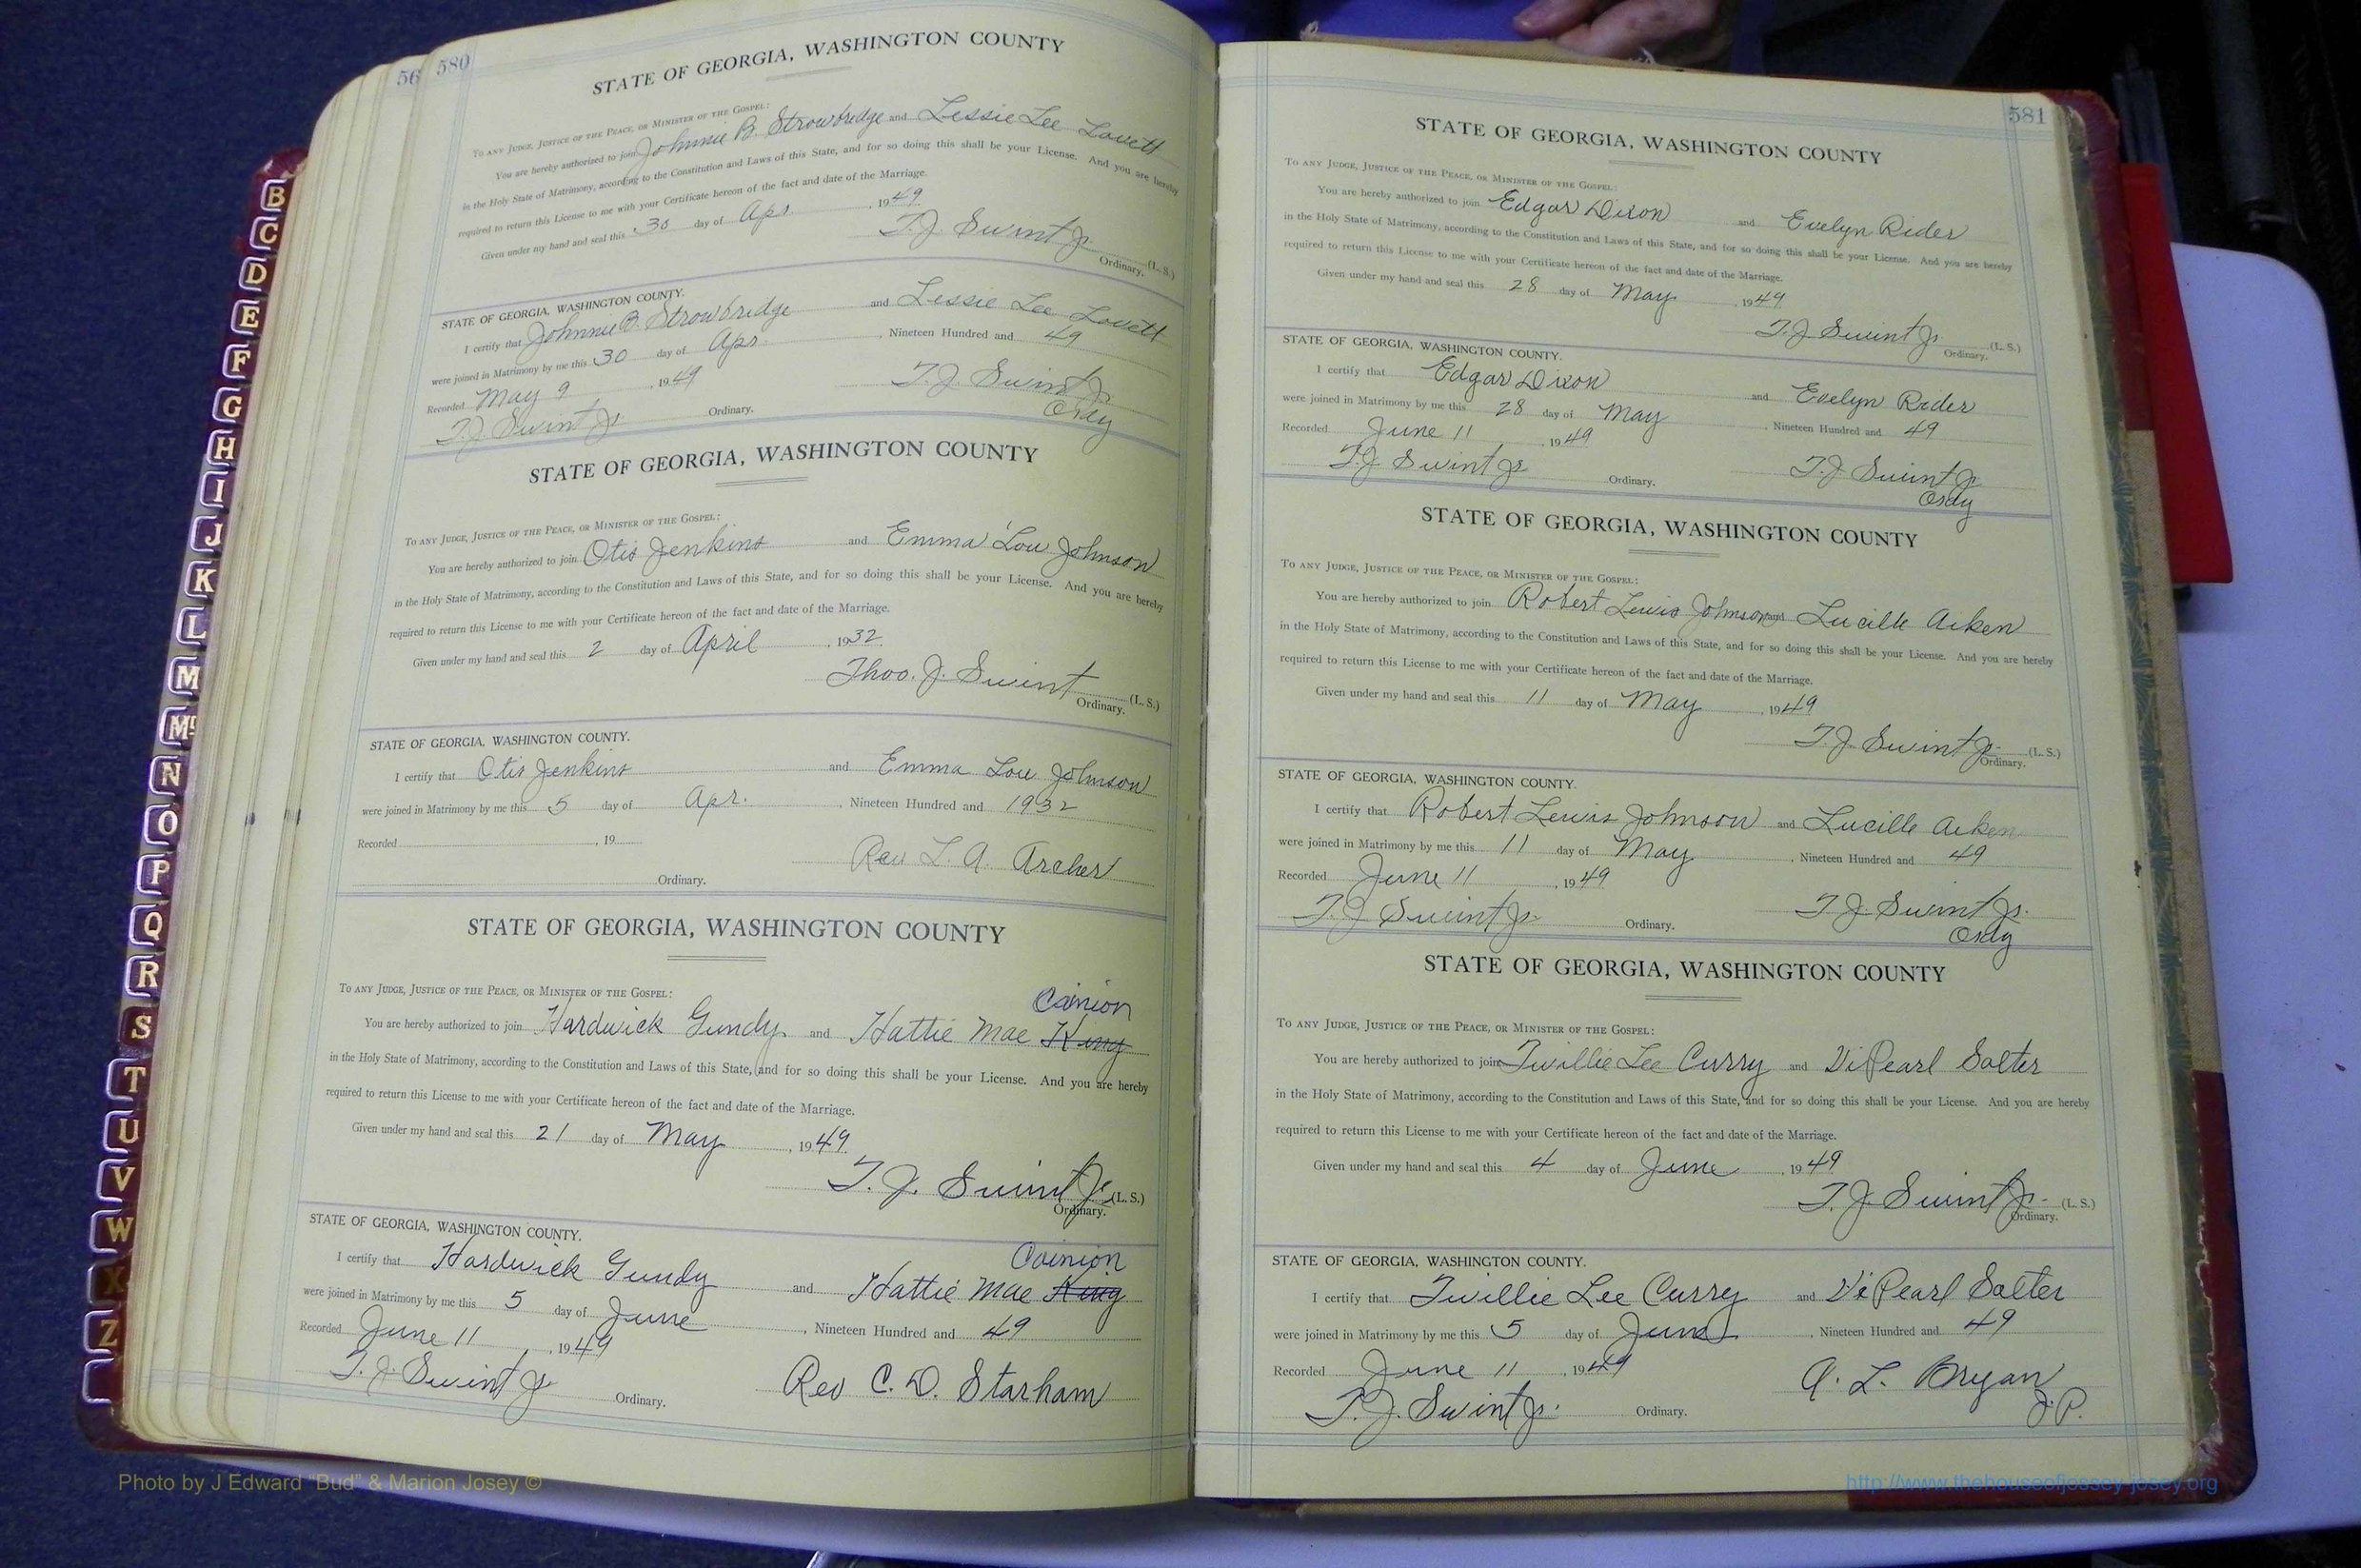 B
C
D
E
F
G
H
I
J
K
L
M
Mc
N
O
P
Q
R
S
T
U
V
W
X
Z
56
580
STATE OF GEORGIA, WASHINGTON COUNTY
To any Judge, Justice of the Peace, or Minister of the Gospel:
You are hereby authorized to join Johnnie B. Strowbridge and Lessie Lee Lovett
in the Holy State of Matrimony, according to the Constitution and Laws of this State, and for so doing this shall be your License. And you are hereby
required to return this License to me with your Certificate hereon of the fact and date of the Marriage.
Given under my hand and seal this 30 day of Apr. , 1949
T.J. Swint Jr. (L. S.)
Ordinary.
STATE OF GEORGIA, WASHINGTON COUNTY.
I certify that Johnnie B. Strowbridge and Lessie Lee Lovett
were joined in Matrimony by me this 30 day of Apr. , Nineteen Hundred and 49
Recorded May 9 , 1949 T.J. Swint Jr.
T.J. Swint Jr Ordinary. Ordy
STATE OF GEORGIA, WASHINGTON COUNTY
To any Judge, Justice of the Peace, or Minister of the Gospel:
You are hereby authorized to join Otis Jenkins and Emma Lou Johnson
in the Holy State of Matrimony, according to the Constitution and Laws of this State, and for so doing this shall be your License. And you are hereby
required to return this License to me with your Certificate hereon of the fact and date of the Marriage.
Given under my hand and seal this 2 day of April , 1932
Thos. J. Swint (L. S.)
Ordinary.
STATE OF GEORGIA, WASHINGTON COUNTY.
I certify that Otis Jenkins and Emma Lou Johnson
were joined in Matrimony by me this 5 day of Apr. , Nineteen Hundred and 1932
Recorded , 19
Rev L. A. Archer
Ordinary.
STATE OF GEORGIA, WASHINGTON COUNTY
To any Judge, Justice of the Peace, or Minister of the Gospel:
Cainion
You are hereby authorized to join Hardwick Gundy and Hattie Mae King
in the Holy State of Matrimony, according to the Constitution and Laws of this State, and for so doing this shall be your License. And you are hereby
required to return this License to me with your Certificate hereon of the fact and date of the Marriage.
Given under my hand and seal this 21 day of May , 1949.
T. J. Swint Jr. (L. S.)
Ordinary.
STATE OF GEORGIA, WASHINGTON COUNTY.
Cainion
I certify that Hardwick Gundy and Hattie Mae King
were joined in Matrimony by me this 5 day of June , Nineteen Hundred and 49
Recorded June 11 , 1949
T. J. Swint Jr Ordinary. Rev C. D. Starham
581
STATE OF GEORGIA, WASHINGTON COUNTY
To any Judge, Justice of the Peace, or Minister of the Gospel:
You are hereby authorized to join Edgar Dixon and Evelyn Rider
in the Holy State of Matrimony, according to the Constitution and Laws of this State, and for so doing this shall be your License. And you are hereby
required to return this License to me with your Certificate hereon of the fact and date of the Marriage.
Given under my hand and seal this 28 day of May , 1949
T.J. Swint Jr. (L. S.)
Ordinary.
STATE OF GEORGIA, WASHINGTON COUNTY.
I certify that Edgar Dixon and Evelyn Rider
were joined in Matrimony by me this 28 day of May , Nineteen Hundred and 49
Recorded June 11 , 1949
T.J. Swint Jr Ordinary. T.J. Swint Jr.
Ordy
STATE OF GEORGIA, WASHINGTON COUNTY
To any Judge, Justice of the Peace, or Minister of the Gospel:
You are hereby authorized to join Robert Lewis Johnson and Lucille Aiken
in the Holy State of Matrimony, according to the Constitution and Laws of this State, and for so doing this shall be your License. And you are hereby
required to return this License to me with your Certificate hereon of the fact and date of the Marriage.
Given under my hand and seal this 11 day of May , 1949
T.J. Swint Jr. (L. S.)
Ordinary.
STATE OF GEORGIA, WASHINGTON COUNTY.
I certify that Robert Lewis Johnson and Lucille Aiken
were joined in Matrimony by me this 11 day of May , Nineteen Hundred and 49
Recorded June 11 , 1949
T. J Swint Jr. Ordinary. T. J. Swint Jr.
Ordy
STATE OF GEORGIA, WASHINGTON COUNTY
To any Judge, Justice of the Peace, or Minister of the Gospel:
You are hereby authorized to join Twillie Lee Curry and Vi Pearl Salter
in the Holy State of Matrimony, according to the Constitution and Laws of this State, and for so doing this shall be your License. And you are hereby
required to return this License to me with your Certificate hereon of the fact and date of the Marriage.
Given under my hand and seal this 4 day of June , 1949
T. J. Swint Jr. (L. S.)
Ordinary.
STATE OF GEORGIA, WASHINGTON COUNTY.
I certify that Twillie Lee Curry and Vi Pearl Salter
were joined in Matrimony by me this 5 day of June , Nineteen Hundred and 49
Recorded June 11 , 1949 A. L. Bryan
T. J. Swint Jr. Ordinary. J.P.
Photo by J Edward "Bud" & Marion Josey ©
http://www.thehouseofjossey-josey.org